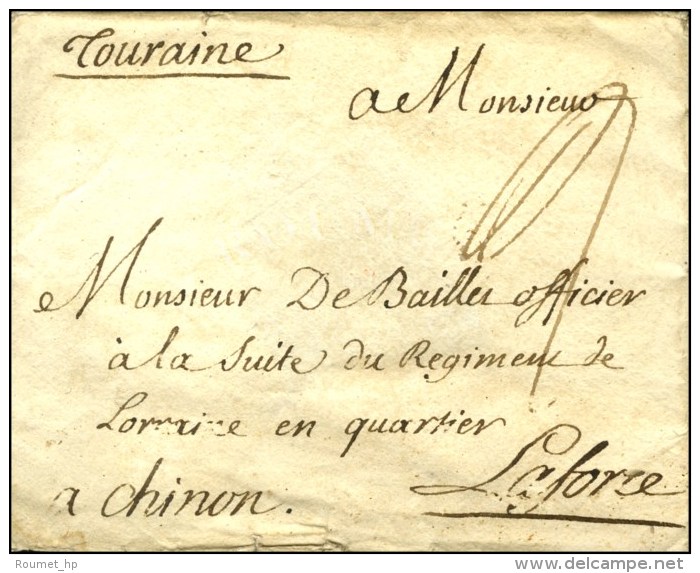 Touraine
a Monsieur
Monsieur De Bailler officier
à la suite du Regiment de
Lorraine en quartier
a chinon.
Laforce
Roumet_hp
delcampe.net